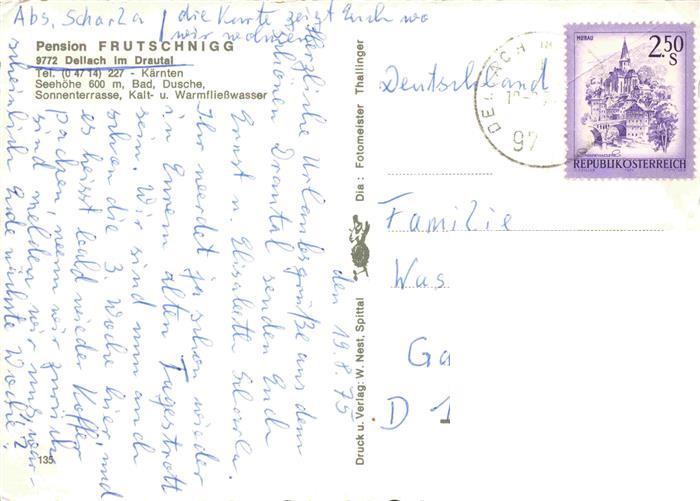 Abs. Scharla / die Karte zeigt Euch wo
wir wohnen
Pension FRUTSCHNIGG
9772 Dellach im Drautal
Tel. (0 47/14) 227 - Kärnten
Seehöhe 600 m, Bad, Dusche,
Sonnenterrasse, Kalt- u. Warmfließwasser
den 19.8.75
Herzliche Urlaubsgrüße aus dem
schönen Drautal senden Euch
Ernst u. Elisabeth Scharla.
Ihr werdet ja schon wieder
in Eurem alten Tagestrott
sein. Wir sind nun auch
schon die 3. Woche hier, und
es heisst bald wieder Koffer
packen, wenn wir zurück
sind melden wir uns, wahr-
scheinlich Ende nächste Woche.
135
Druck u. Verlag: W. Nest, Spittal
Dia: Fotomeister Thallinger
DELLACH IM
97
MURAU
2.50
S
REPUBLIK ÖSTERREICH
Deutschland
Familie
Was
Ga
D 1